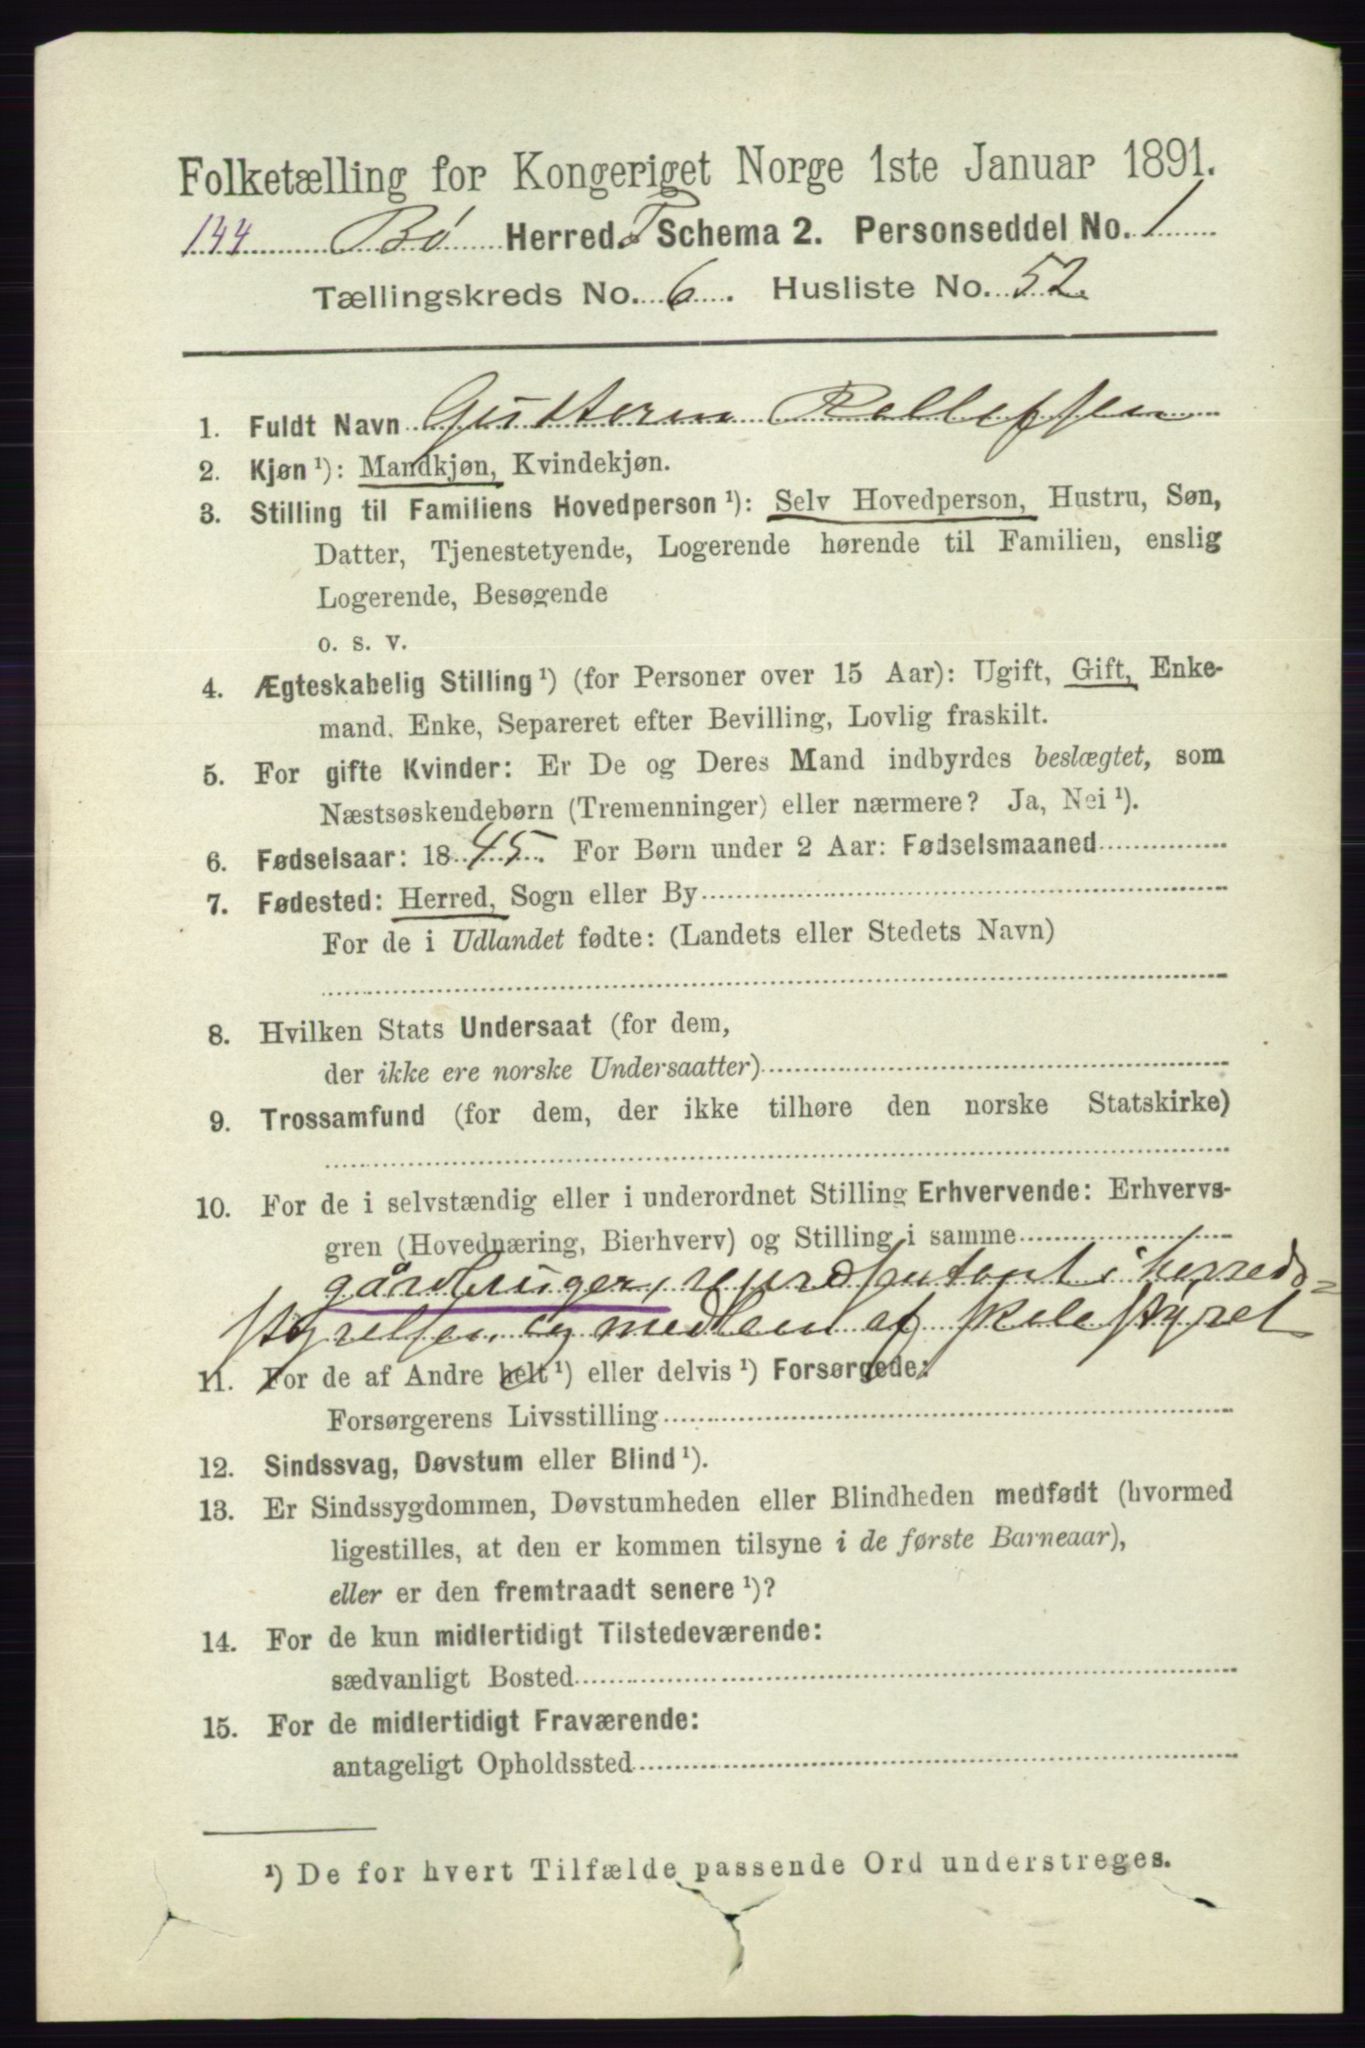 Folketælling for Kongeriget Norge 1ste Januar 1891.
144 Bø Herred. T Schema 2. Personseddel No. 1
Tællingskreds No. 6. Husliste No. 52.
1. Fuldt Navn Guttorm Rollefsen
2. Kjøn ¹): Mandkjøn, Kvindekjøn.
3. Stilling til Familiens Hovedperson ¹): Selv Hovedperson, Hustru, Søn,
Datter, Tjenestetyende, Logerende hørende til Familien, enslig
Logerende, Besøgende
o. s. v.
4. Ægteskabelig Stilling ¹) (for Personer over 15 Aar): Ugift, Gift, Enke-
mand, Enke, Separeret efter Bevilling, Lovlig fraskilt.
5. For gifte Kvinder: Er De og Deres Mand indbyrdes beslægtet, som
Næstsøskendebørn (Tremenninger) eller nærmere? Ja, Nei ¹).
6. Fødselsaar: 1845. For Børn under 2 Aar: Fødselsmaaned
7. Fødested: Herred, Sogn eller By
For de i Udlandet fødte: (Landets eller Stedets Navn)
8. Hvilken Stats Undersaat (for dem,
der ikke ere norske Undersaatter)
9. Trossamfund (for dem, der ikke tilhøre den norske Statskirke)
10. For de i selvstændig eller i underordnet Stilling Erhvervende: Erhvervs-
gren (Hovednæring, Bierhverv) og Stilling i samme
gårdbruger, repræsentant i herreds=
styrelsen, og medlem af skolestyret
11. For de af Andre helt ¹) eller delvis ¹) Forsørgede:
Forsørgerens Livsstilling
12. Sindssvag, Døvstum eller Blind ¹).
13. Er Sindssygdommen, Døvstumheden eller Blindheden medfødt (hvormed
ligestilles, at den er kommen tilsyne i de første Barneaar),
eller er den fremtraadt senere ¹)?
14. For de kun midlertidigt Tilstedeværende:
sædvanligt Bosted
15. For de midlertidigt Fraværende:
antageligt Opholdssted
¹) De for hvert Tilfælde passende Ord understreges.